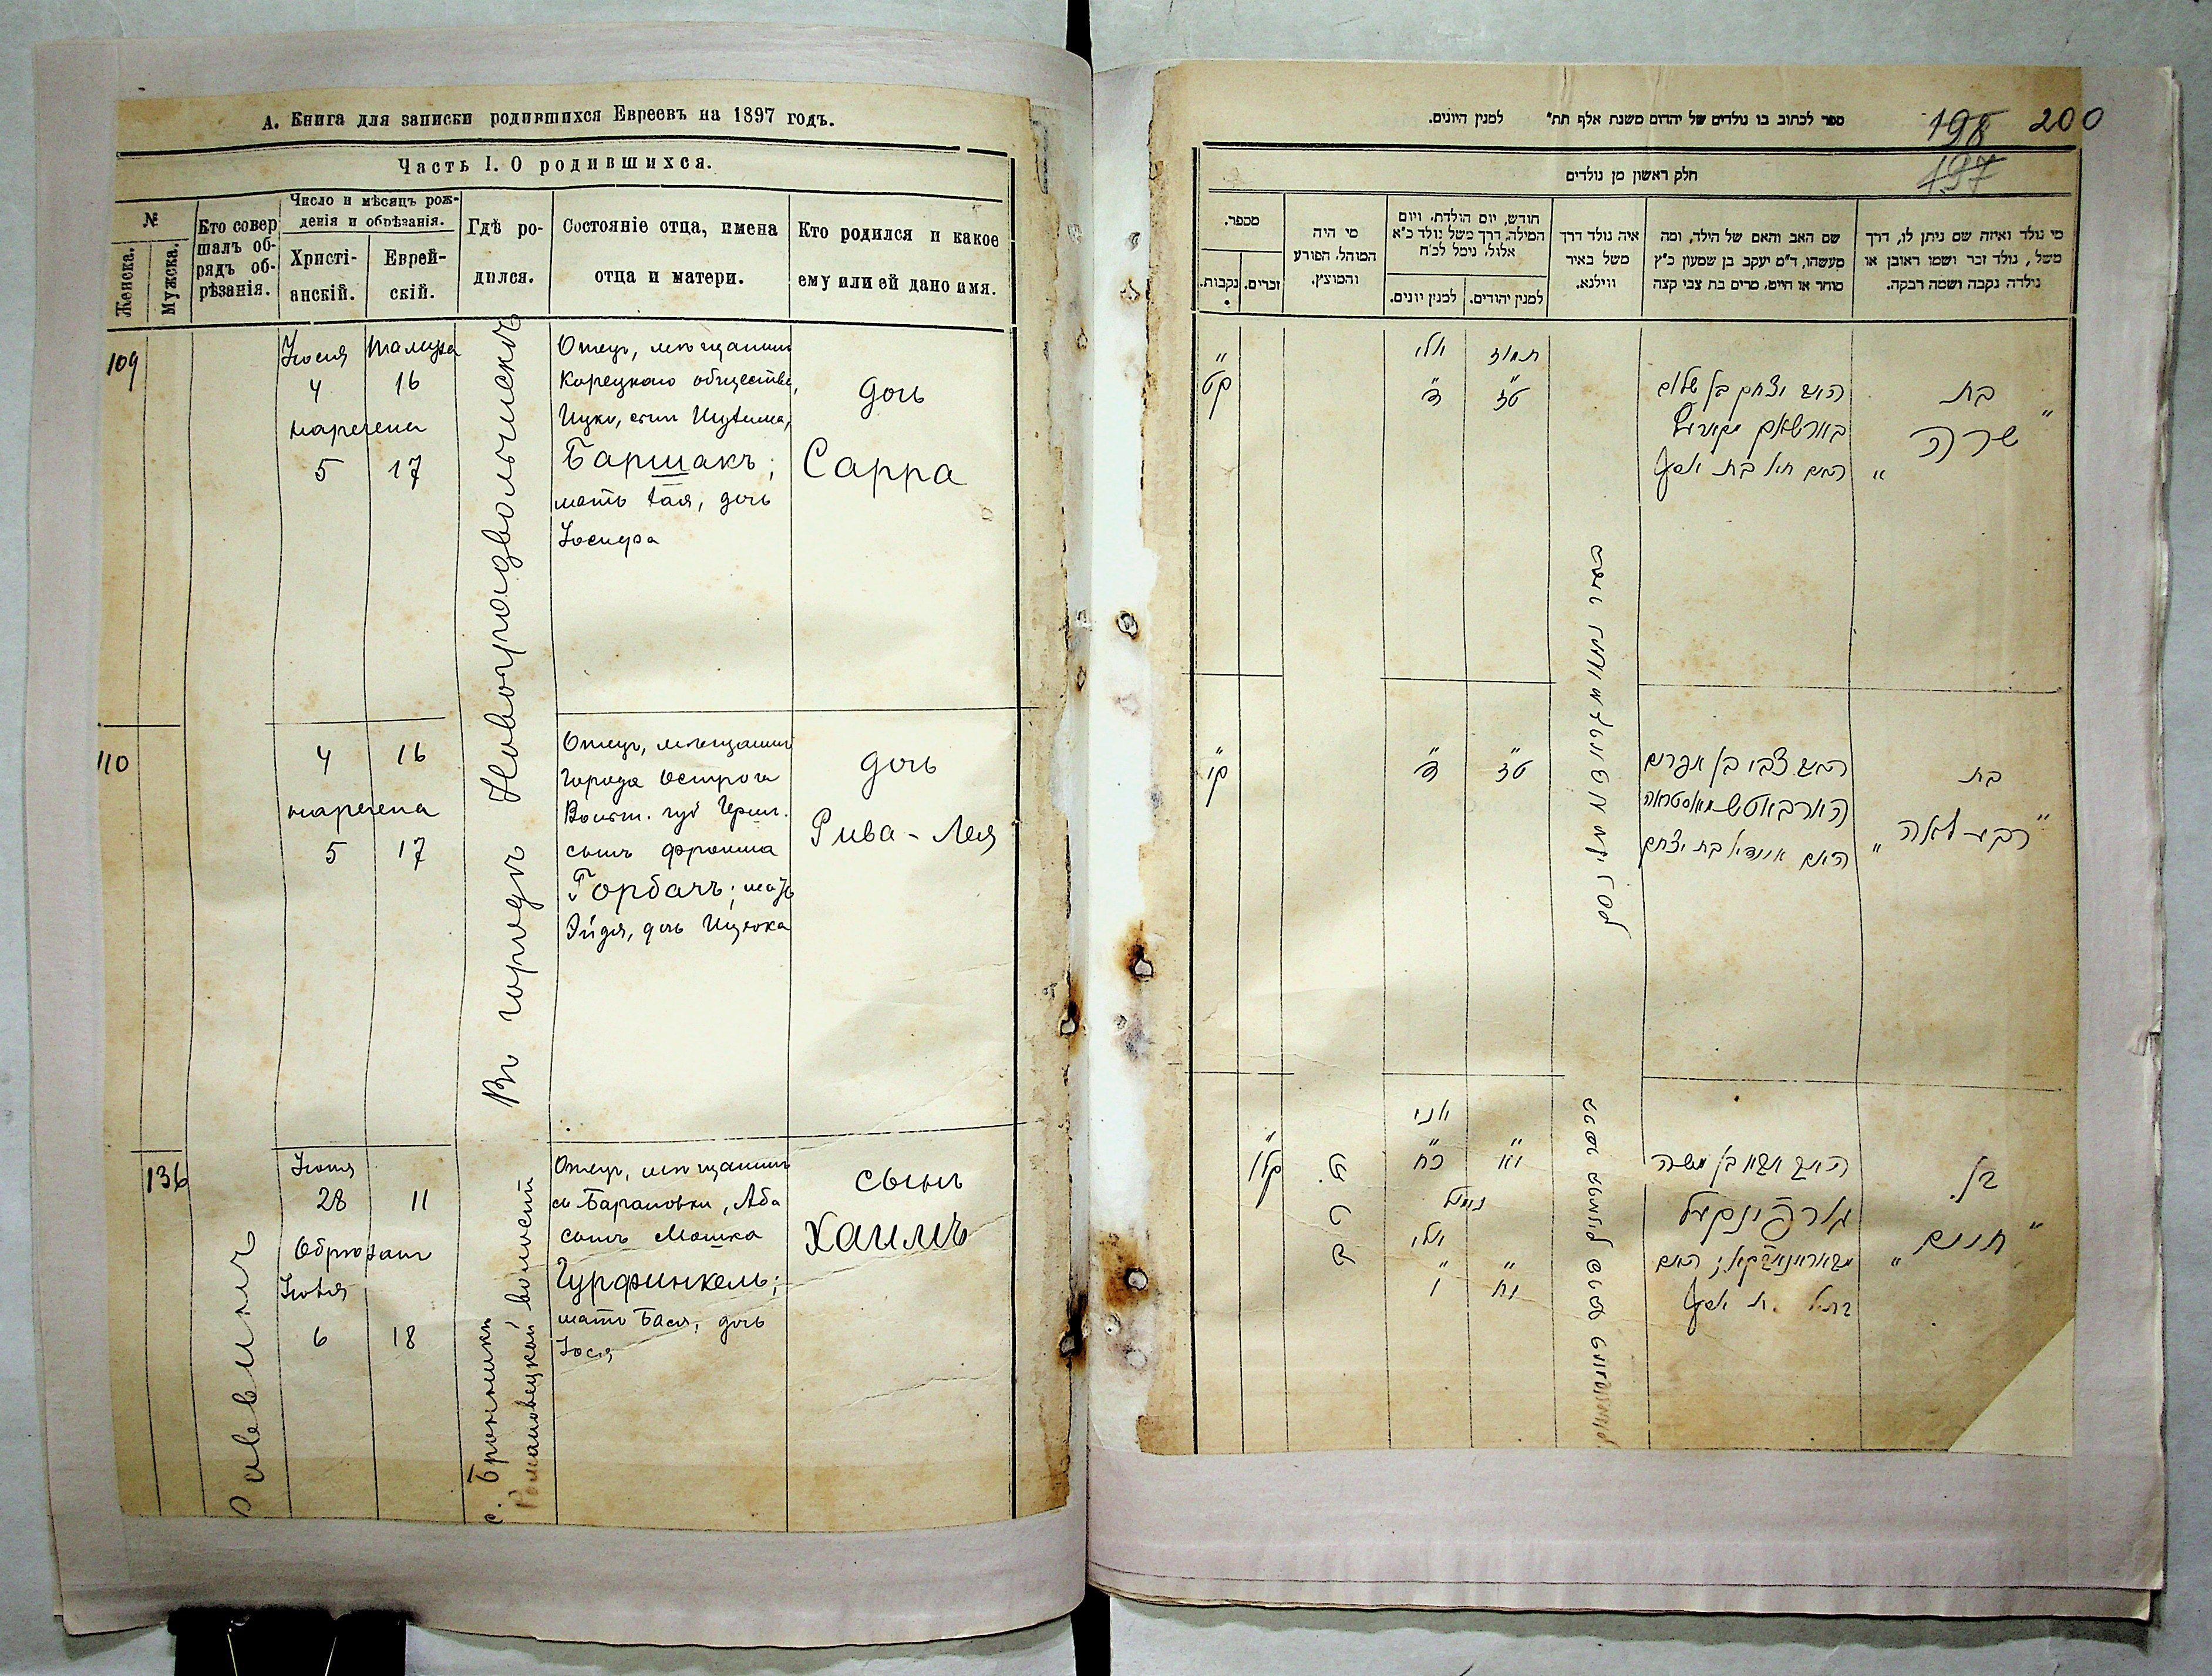 А. Книга для записки родившихся Евреевъ на 1897 годъ.
Часть I. О родившихся.
№
Женска.
Мужска.
Кто совер
шалъ об-
рядъ об-
рѣзанія.
Число и мѣсяцъ рож-
денія и обрѣзанія.
Христі-
анскій.
Еврей-
скій.
Гдѣ ро-
дился.
Состояніе отца, имена
отца и матери.
Кто родился и какое
ему или ей дано имя.
109
Іюля Тамуза
4 16
наречена
5 17
Въ городѣ Новоградволынскѣ
Отецъ, мѣщанинъ
Корецкаго общества,
Ицко, сынъ
Баршакъ;
мать Хая, дочь
Іосифа
дочь
Сарра
110
4 16
наречена
5 17
Отецъ, мѣщанинъ
города Острога
Волын. губ Герш.
сынъ Фроима
Горбачъ; мать
Эйдя, дочь Ицхока
дочь
Рива-Лея
136
Раввинъ
Іюня
28 11
Обрѣзанъ
Іюля
6 18
с. Бронники
Романовецкой волости
Отецъ, мѣщанинъ
м. Барановки, Аба
сынъ Мошка
Гурфинкель;
мать Бася, дочь
Іося
сынъ
Хаимъ
ספר לכתוב בו נולדים של יהדום משנת אלף תת" למנין היונים.
198 200
197
חלק ראשון מן נולדים
מי נולד ואיזה שם ניתן לו, דרך
משל, נולד זכר ושמו ראובן או
נולדה נקבה ושמה רבקה.
שם האב והאם של הילד, ומה
מעשהו, ד"מ יעקב בן שמעון כ"ץ
סוחר או חייט, מרים בת צבי קצה
איה נולד דרך
משל באיר
ווילנא.
חודש, יום הולדת, ויום
המילה, דרך משל נולד כ"א
אלול, נימל לכ"ח
למנין יהודים.
למנין יונים.
מי היה
המוהל, הפורע
והמוצץ.
מספר.
זכרים.
נקבות.
בת
שרה
האב יצחק בן שלום
האם חיה בת יוסף
תמוז יולי
ט"ז ד"
ק"ט
בת
"רבע לאה"
האב צבי בן אפרים
האם איידיא בת יצחק
ט"ז ד"
ק"י
בן
"חיים"
האב אבא בן משה
גורפינקעל
האם
יוני
י"א כ"ח
נימול
יולי
י"ח ו'
קל"ו